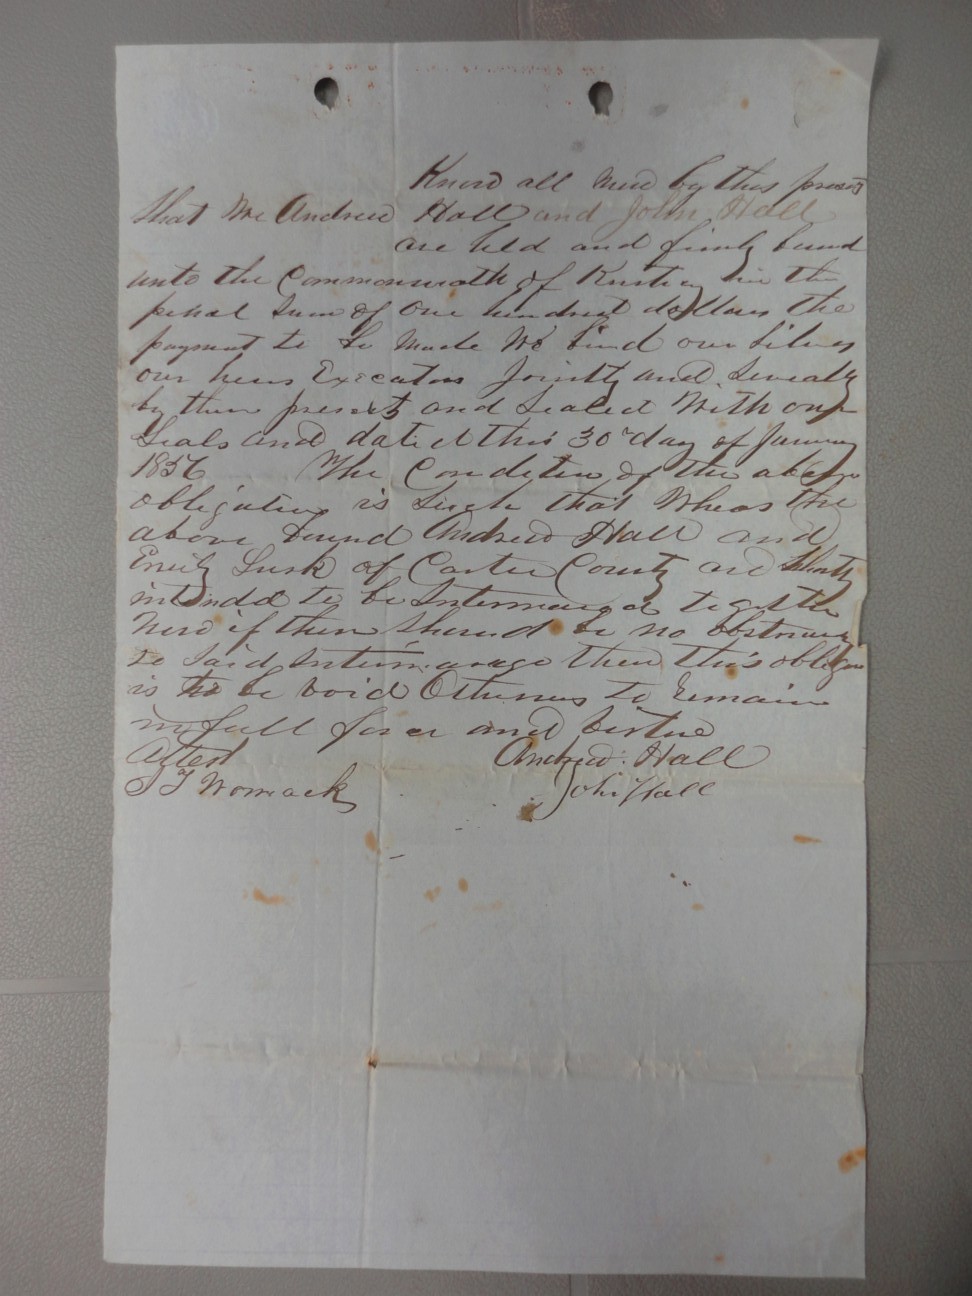 Know all men by thes presents
that We Andrew Hall and John Hall
are held and firmly bound
unto the Commonwealth of Kentucky in the
penal Sum of One hundred dollars the
payment to be made We bind our Selves
our heirs Executors Jointly and Severally
by these presents and Sealed With our
Seals and dated this 30th day of January
1856 The Condition of the above
obligation is Such that Wheras the
above bound Andrew Hall and
Emily Lusk of Carter County are Shortly
intended to be Intermaried together
Now if there Should be no obstruction
to Said Intermarage then this obligation
is to be void Otherwise to Remain
in full force and virtue
Attest Andrew Hall
Womack John Hall